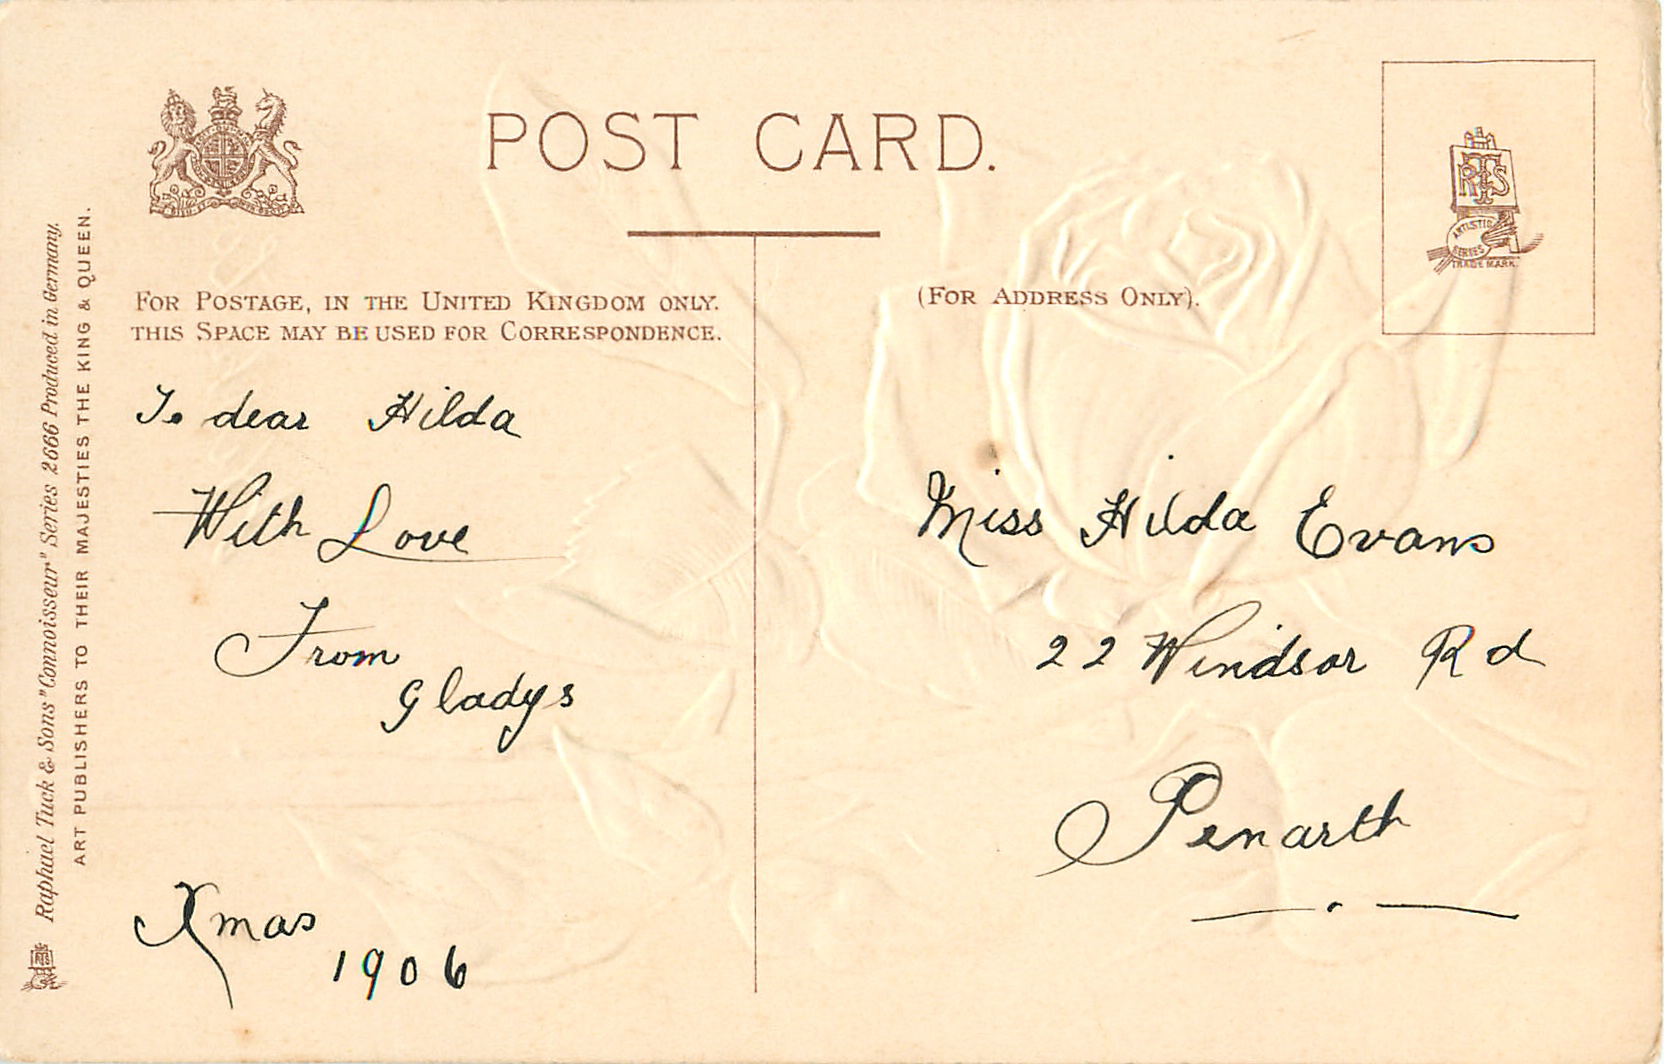 POST CARD.
FOR POSTAGE, IN THE UNITED KINGDOM ONLY.
THIS SPACE MAY BE USED FOR CORRESPONDENCE.
(FOR ADDRESS ONLY).
RTS
ARTISTIC
SERIES
TRADE MARK.
To dear Hilda
With Love
From
Gladys
Xmas
1906
Miss Hilda Evans
22 Windsor Rd
Penarth
Raphael Tuck & Sons "Connoisseur" Series 2666 Produced in Germany.
ART PUBLISHERS TO THEIR MAJESTIES THE KING & QUEEN.